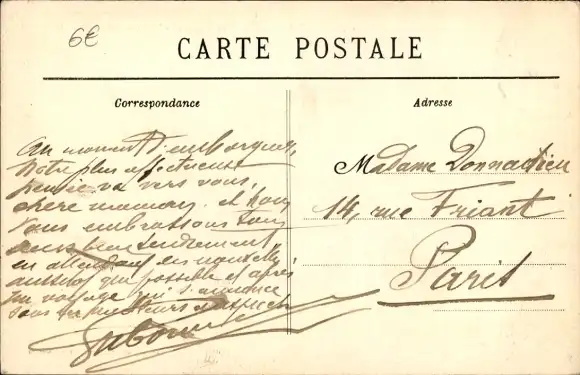 6€
CARTE POSTALE
Correspondance
Adresse
au moment d'embarquer,
notre plus affectueuse
pensée va vers vous,
chère maman, et nous
vous embrassons tous
deux bien tendrement,
en attendant des nouvelles
aussitôt que possible et après
un voyage qui s'annonce
sous les meilleurs auspices
Madame Donnadieu
14, rue Friant
Paris